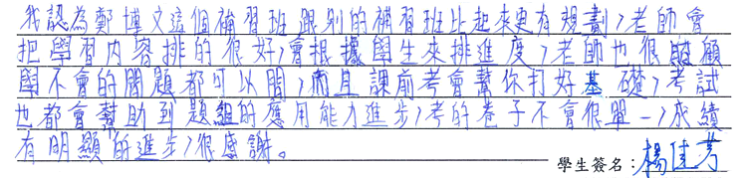 我認為鄭博文這個補習班跟別的補習班比起來更有規劃,老師會
把學習內容排的很好,會根據學生來排進度,老師也很照顧
學不會的問題都可以問,而且課前考會幫你打好基礎,考試
也都會幫助到題組的應用能力進步,考的卷子不會很單一,成績
有明顯的進步,很感謝。
學生簽名:楊佳芳